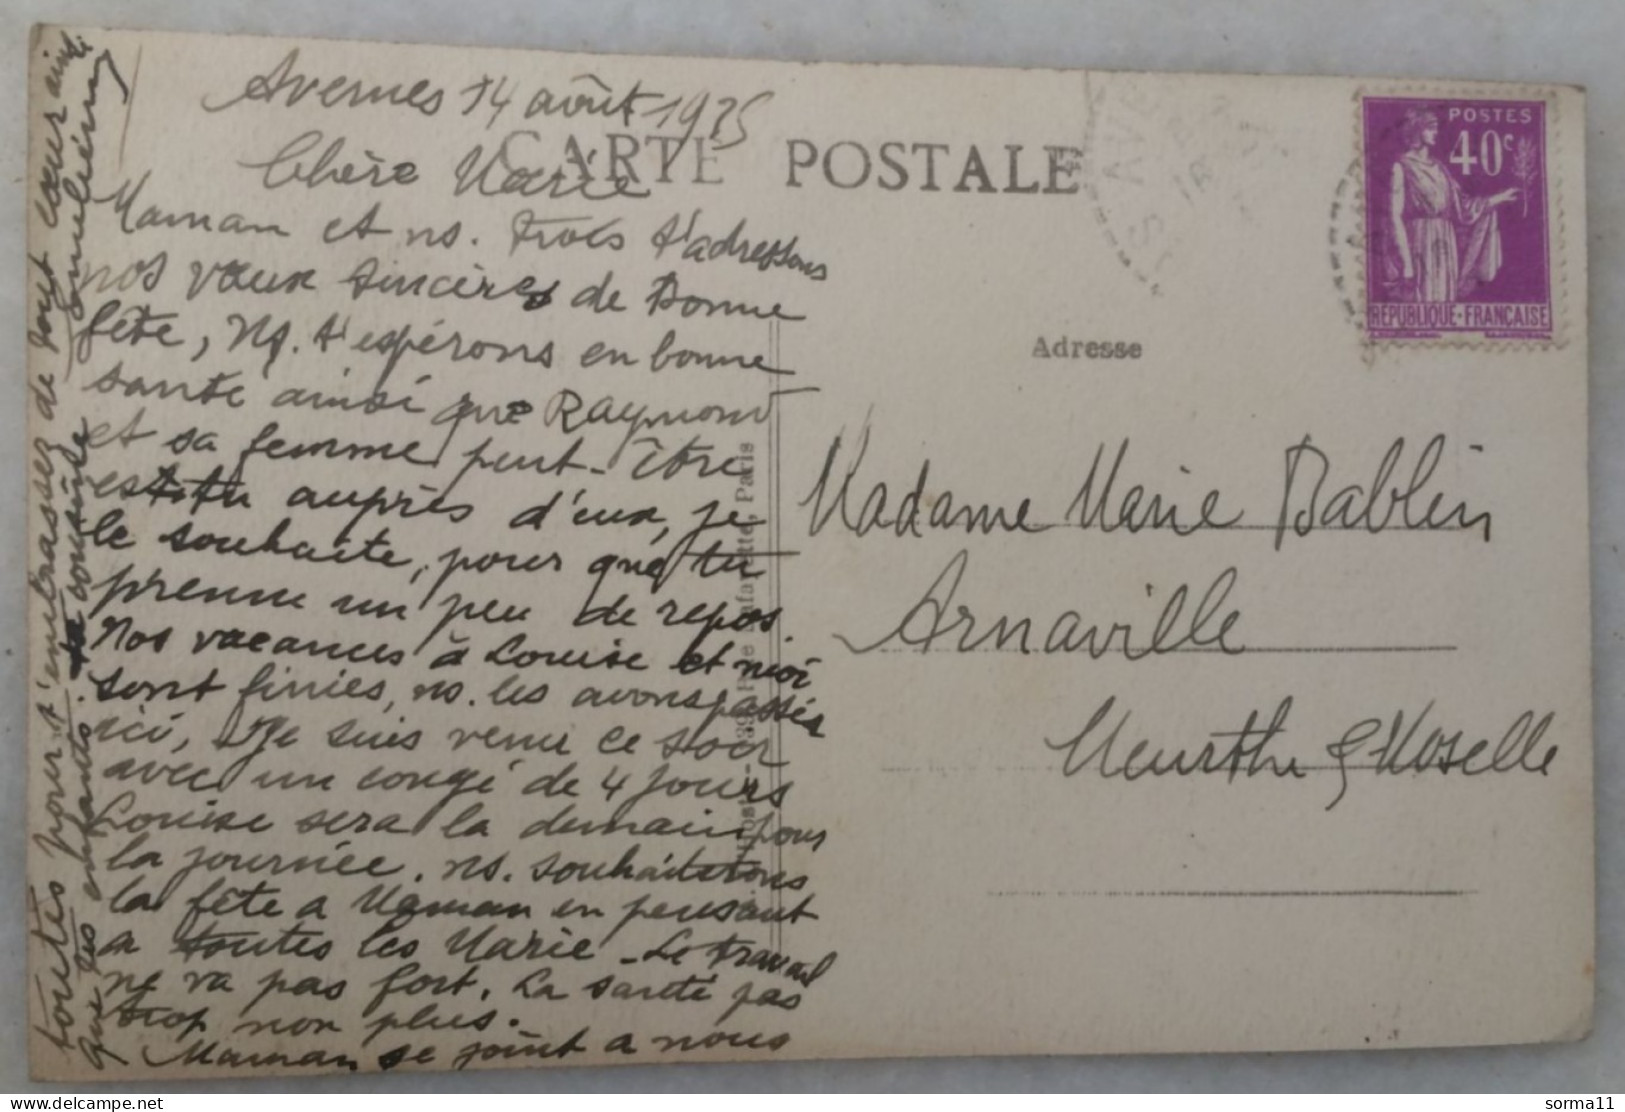 Avernes 14 août 1935
CARTE POSTALE
Chère Marie
Maman et ns. trois t'adressons
nos vœux sincères de Bonne
fête, Ns. t'espérons en bonne
santé ainsi que Raymond
et sa femme peut-être
es-tu auprès d'eux, je
le souhaite, pour que tu
prenne un peu de repos.
Nos vacances à Louise et moi
sont finies, ns. les avons passées
ici, Je suis venu ce soir
avec un congé de 4 jours
Louise sera là demain pour
la journée. ns. souhaiterons
la fête a Maman en pensant
a toutes les Marie - Le travail
ne va pas fort. La santé pas
trop non plus.
Maman se joint a nous
toutes pour t'embrasser de tout cœur ainsi
que tes enfants. ta cousine
POSTES
40c
REPUBLIQUE-FRANÇAISE
Adresse
Madame Marie Bablin
Arnaville
Meurthe & Moselle
Lafayette, Paris
sorma11